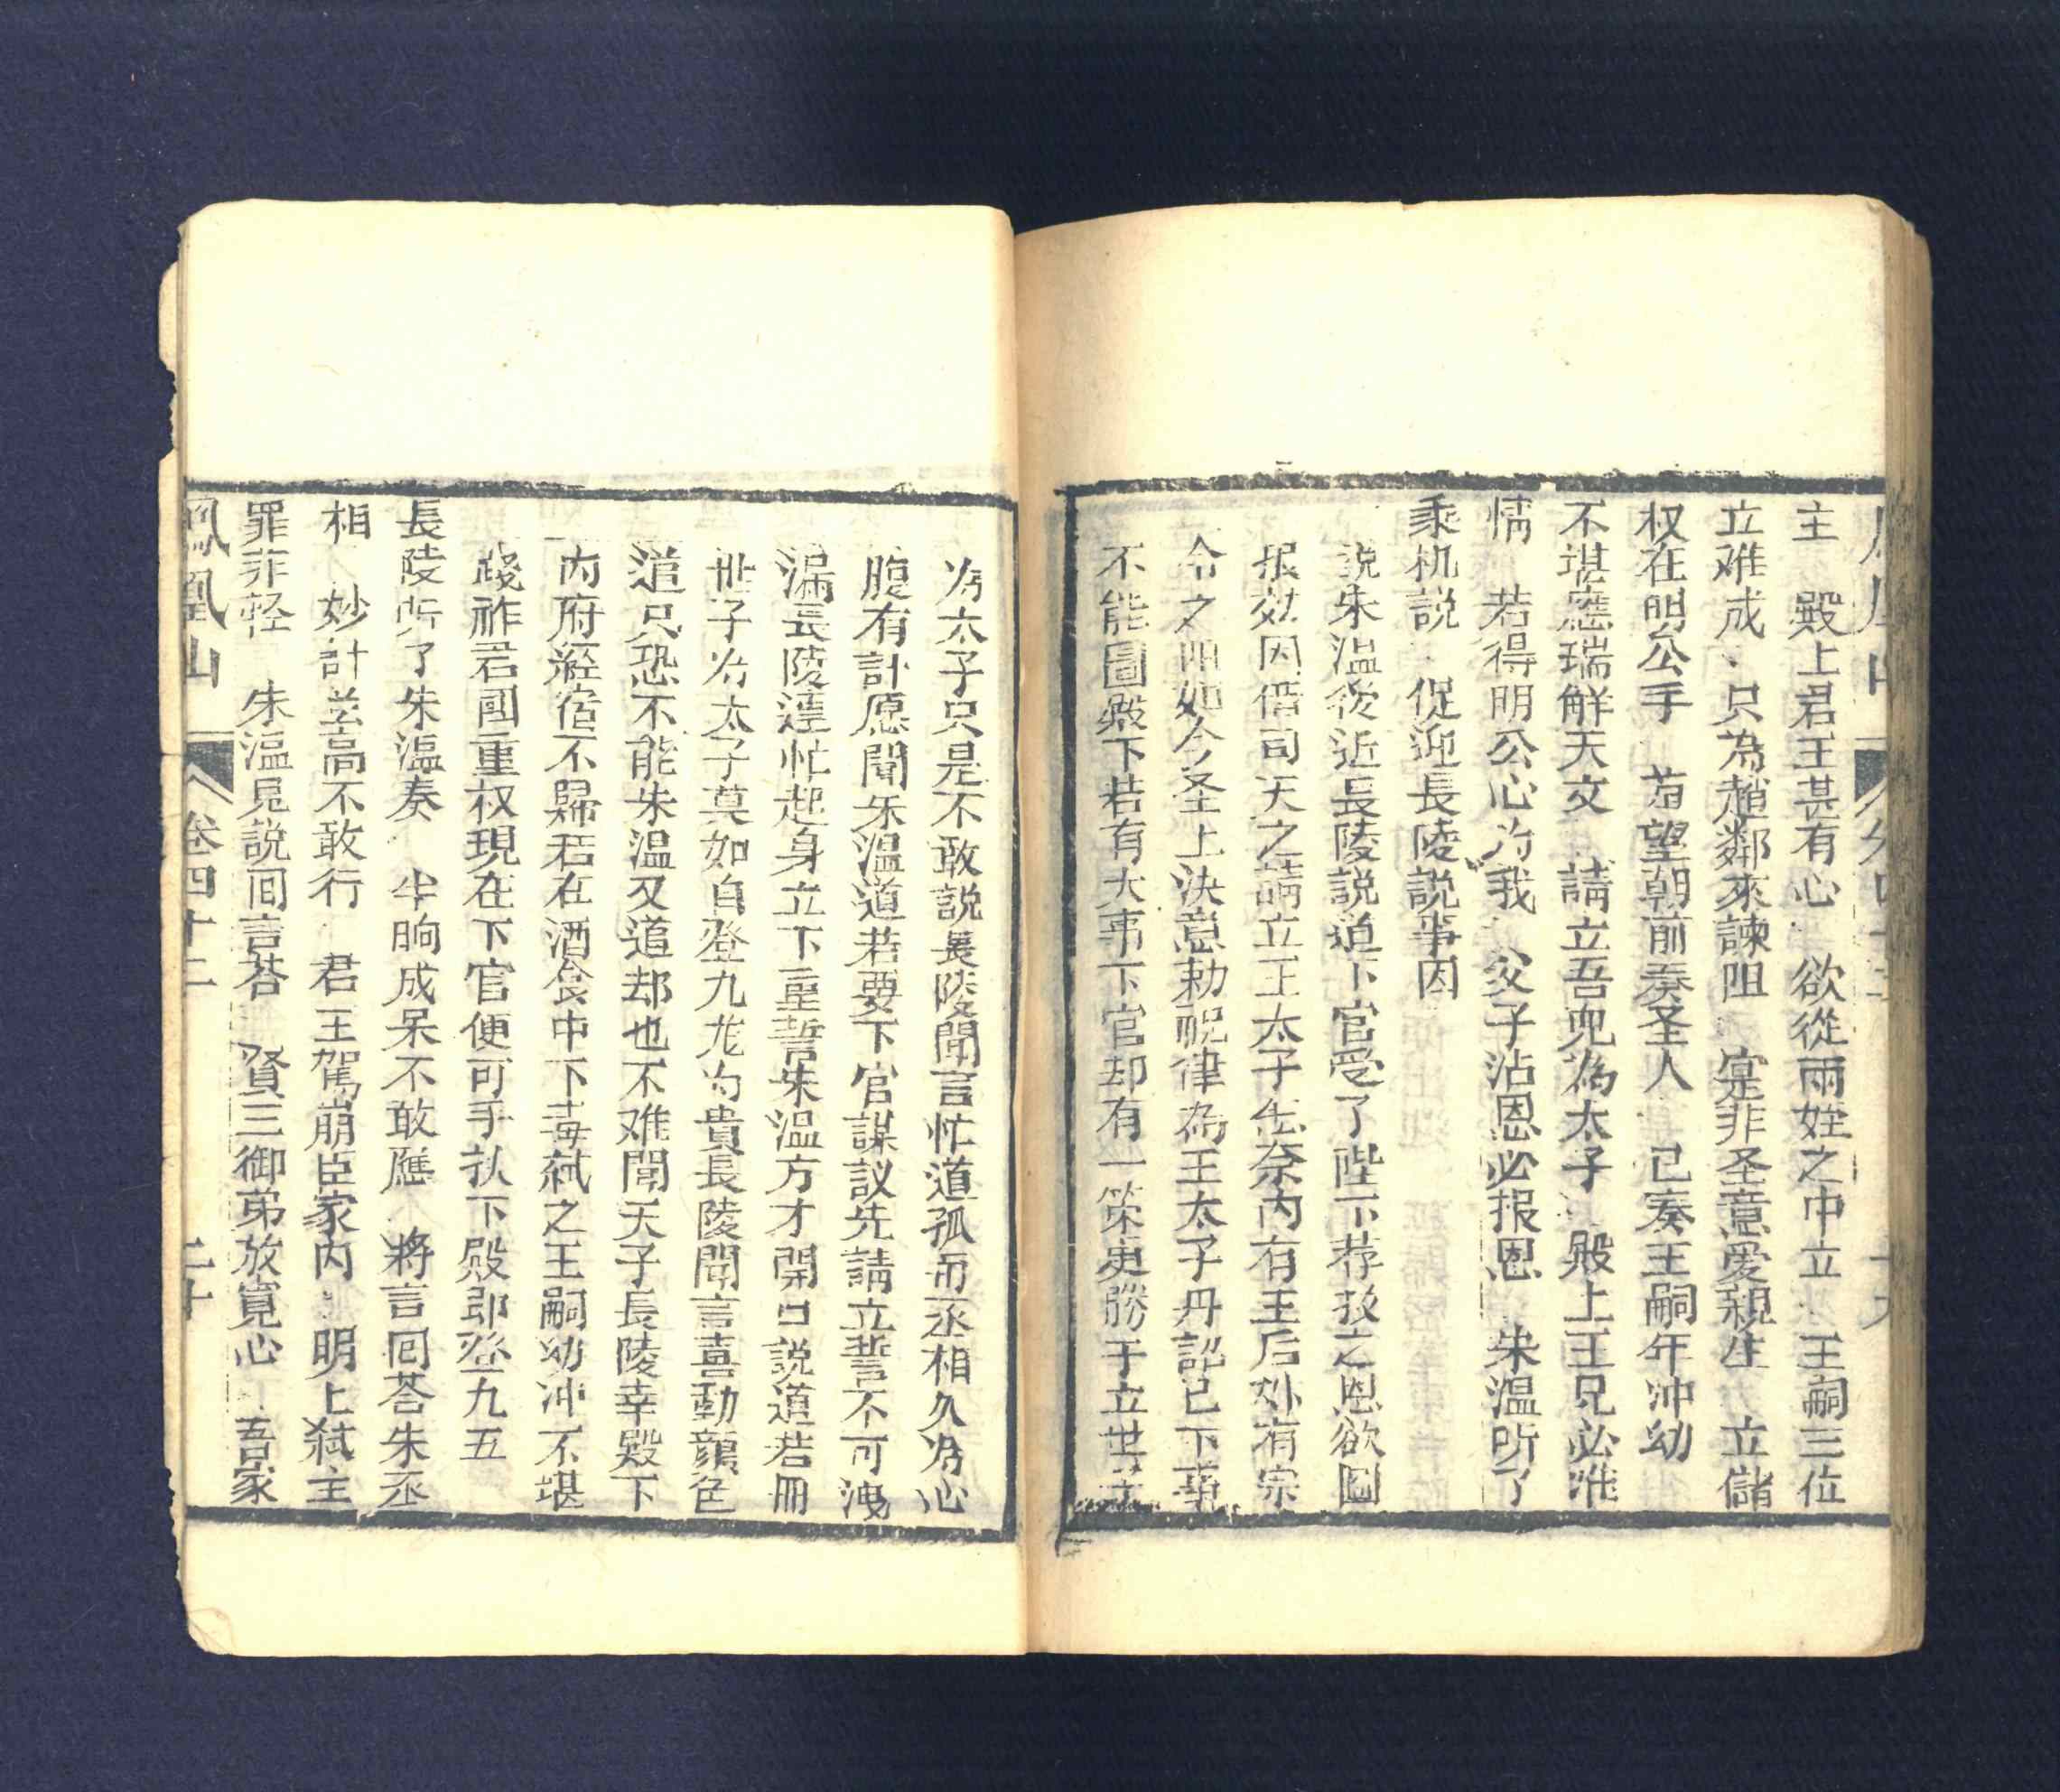 主　殿上君王甚有心　欲從兩姓之中立　王嗣三位
立难成　只為趙鄰來諫阻　寔非圣意爱親生　立儲
权在明公手　若望朝前奏圣人　已奏王嗣年冲幼
不堪應瑞觧天文　請立吾兜為太子　殿上王兄必准
情　若得明公心为我　父子沾恩必报恩　朱温听了
乘机說　促迎長陵說事因
說朱温後近長陵說道下官受了陛下荐拔之恩欲圖
报效因借司天之請立王太子怎奈内有王后外有宗
令之阻如今圣上決意勅祝律為王太子丹詔已下事
不能圖殿下若有大事下官却有一策更勝于立世子
为太子只是不敢說長陵聞言忙道孤而丞相久为心
腹有計愿聞朱温道若要下官謀議先請立誓不可洩
漏長陵連忙起身立下重誓朱温方才開口説道若冊
世子为太子莫如自登九龙为貴長陵聞言喜動顔色
道只恐不能朱温又道却也不难聞天子長陵幸殿下
内府经宿不歸若在酒食中下毒弑之王嗣幼冲不堪
踐祚君國重权現在下官便可手扶下殿即登九五
長陵听了朱温奏　半晌成呆不敢應　將言回荅朱丞
相　妙計虽高不敢行　君王駕崩臣家内　明上弑主
罪非轻　朱温見説回言荅　賢王御弟放寛心　吾家
鳳凰山　卷四十二　二十